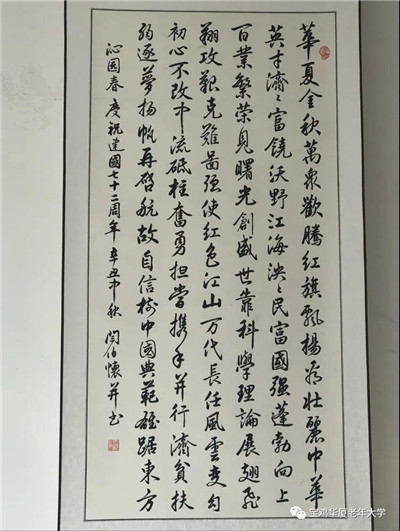 華夏金秋萬衆歡騰紅旗飄揚看壯麗中華
英才濟々富饒沃野江海泱々民富國强蓬勃向上
百業繁荣見曙光創盛世靠科學理論展翅飛
翔攻艱克難啚强使紅色江山万代長任風雲变幻
初心不改中流砥柱奮勇担當携手并行濟貧扶
弱逐夢揚帆再啓航故自信树中國典範雄踞東方
沁园春 庆祝建國七十二周年 辛丑中秋 闵伯懷并书
宝鸡华厦老年大学